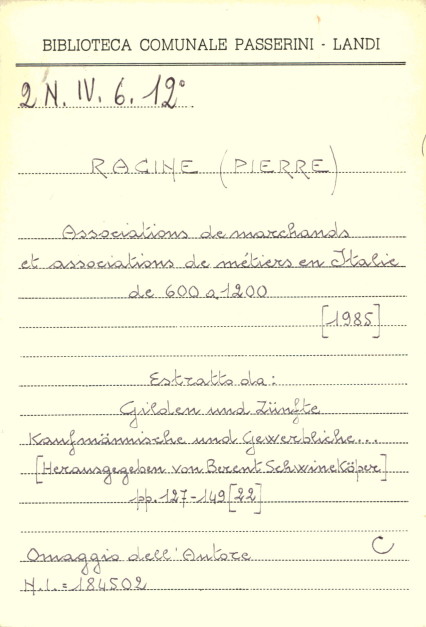 BIBLIOTECA COMUNALE PASSERINI - LANDI
2 N. IV. 6. 12°.
RACINE (PIERRE)
Associations de marchands
et associations de métiers en Italie
de 600 a 1200
[1985]
Estratto da:
Gilden und Zünfte
Kaufmännische und Gewerbliche...
[Herausgegeben von Berent Schwineköper]
pp. 127-149 [22]
Omaggio dell'Autore C
N.I. = 184502